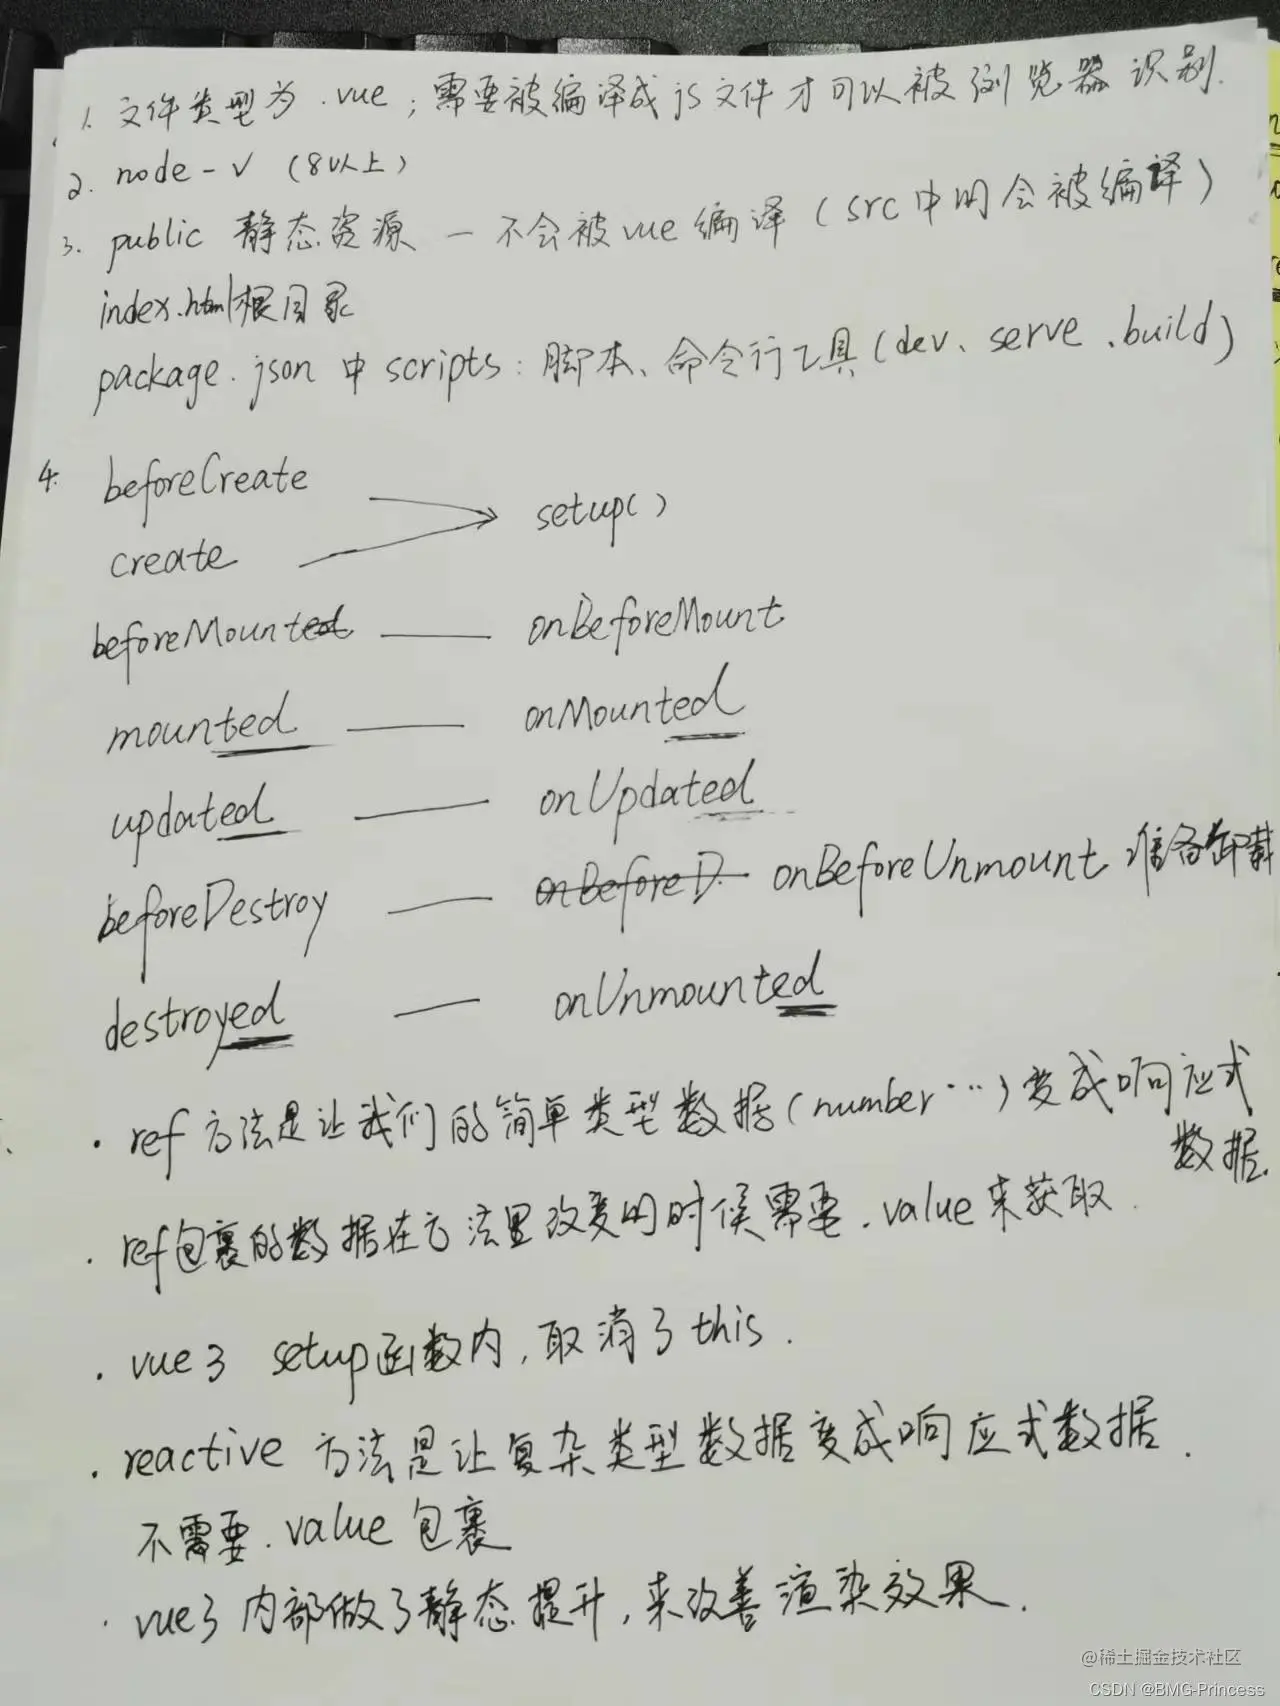 1. 文件类型为 .vue；需要被编译成js文件才可以被浏览器识别.
2. node - v （8以上）
3. public 静态资源 — 不会被vue编译（src中的会被编译）
index.html根目录
package.json 中 scripts：脚本、命令行工具（dev、serve、build）
4. beforeCreate
setup()
create
beforeMounted —— onBeforeMount
mounted —— onMounted
updated —— onUpdated
beforeDestroy —— onBeforeD. onBeforeUnmount 准备卸载
destroyed —— onUnmounted
· ref 方法是让我们的简单类型数据（number…）变成响应式
数据.
· ref包裹的数据在方法里改变的时候需要.value来获取.
· vue3 setup函数内，取消了this.
· reactive 方法是让复杂类型数据变成响应式数据.
不需要.value包裹
· vue3内部做了静态提升，来改善渲染效果.
@稀土掘金技术社区
CSDN @BMG-Princess